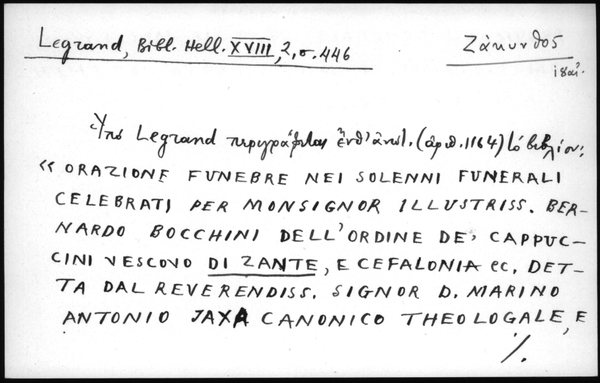 Legrand, Bibl. Hell. XVIII, 2, σ. 446
Ζάκυνθος
ἰδαί.
Ὑπὸ Legrand περιγράφεται ἐνθ' ἀνωτ. (ἀριθ. 1164) τὸ βιβλίον:
«ORAZIONE FUNEBRE NEI SOLENNI FUNERALI
CELEBRATI PER MONSIGNOR ILLUSTRISS. BER-
NARDO BOCCHINI DELL'ORDINE DE' CAPPUC-
CINI VESCOVO DI ZANTE, E CEFALONIA ec. DET-
TA DAL REVERENDISS. SIGNOR D. MARINO
ANTONIO JAXA CANONICO THEOLOGALE, E
%.